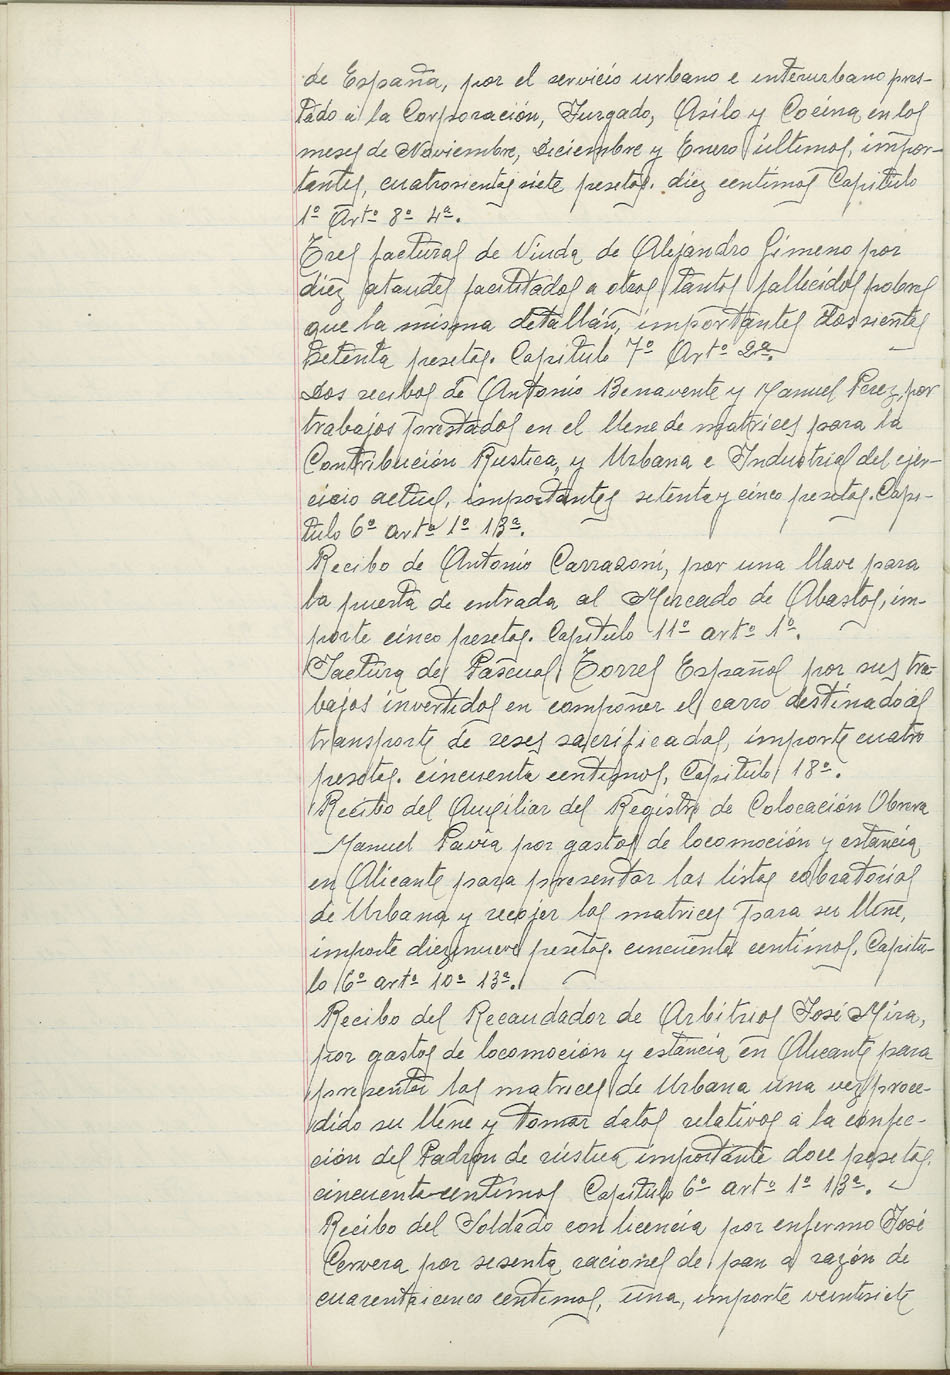 de España, por el servicio urbano e interurbano pres-
tado a la Corporación, Juzgado, Asilo y Cocina en los
meses de Noviembre, Diciembre y Enero últimos, impor-
tantes, cuatrocientas siete pesetas. diez centimos Capitulo
1º Artº 8º 4ª.
Tres facturas de Viuda de Alejandro Gimeno por
diez ataudes facilitados a otros tantos fallecidos pobres
que la misma detallán, importantes doscientas
setenta pesetas. Capitulo 7º Artº 2ª.
Dos recibos de Antonio Benavente y Manuel Perez, por
trabajos prestados en el llene de matrices para la
Contribución Rustica, y Urbana e Industrial del ejer-
cicio actual, importantes setenta y cinco pesetas. Capi-
tulo 6º artº 1º 13ª.
Recibo de Antonio Carrazoni, por una llave para
la puerta de entrada al Mercado de Abastos, im-
porte cinco pesetas. Capitulo 11º artº 1º.
Factura de Pascual Torres Español por sus tra-
bajos invertidos en componer el carro destinado al
transporte de reses sacrificadas, importe cuatro
pesetas. cincuenta centimos, Capitulo 18º.
Recibo del Auxiliar del Registro de Colocación Obrera
Manuel Pavia por gastos de locomoción y estancia
en Alicante para presentar las listas cobratorias
de Urbana y recojer las matrices para su llene,
importe diezinueve pesetas. cincuenta centimos. Capitu-
lo 6º artº 10º 13ª.
Recibo del Recaudador de Arbitrios José Mira,
por gastos de locomoción y estancia en Alicante para
presentar las matrices de Urbana una vez proce-
dido su llene y tomar datos relativos a la confec-
ción del Padrón de rústica importante doce pesetas.
cincuenta centimos Capitulo 6º artº 1º 13ª.
Recibo del Soldado con licencia por enfermo José
Cervera por sesenta raciones de pan a razón de
cuarentaicinco centimos, una, importe veintisiete